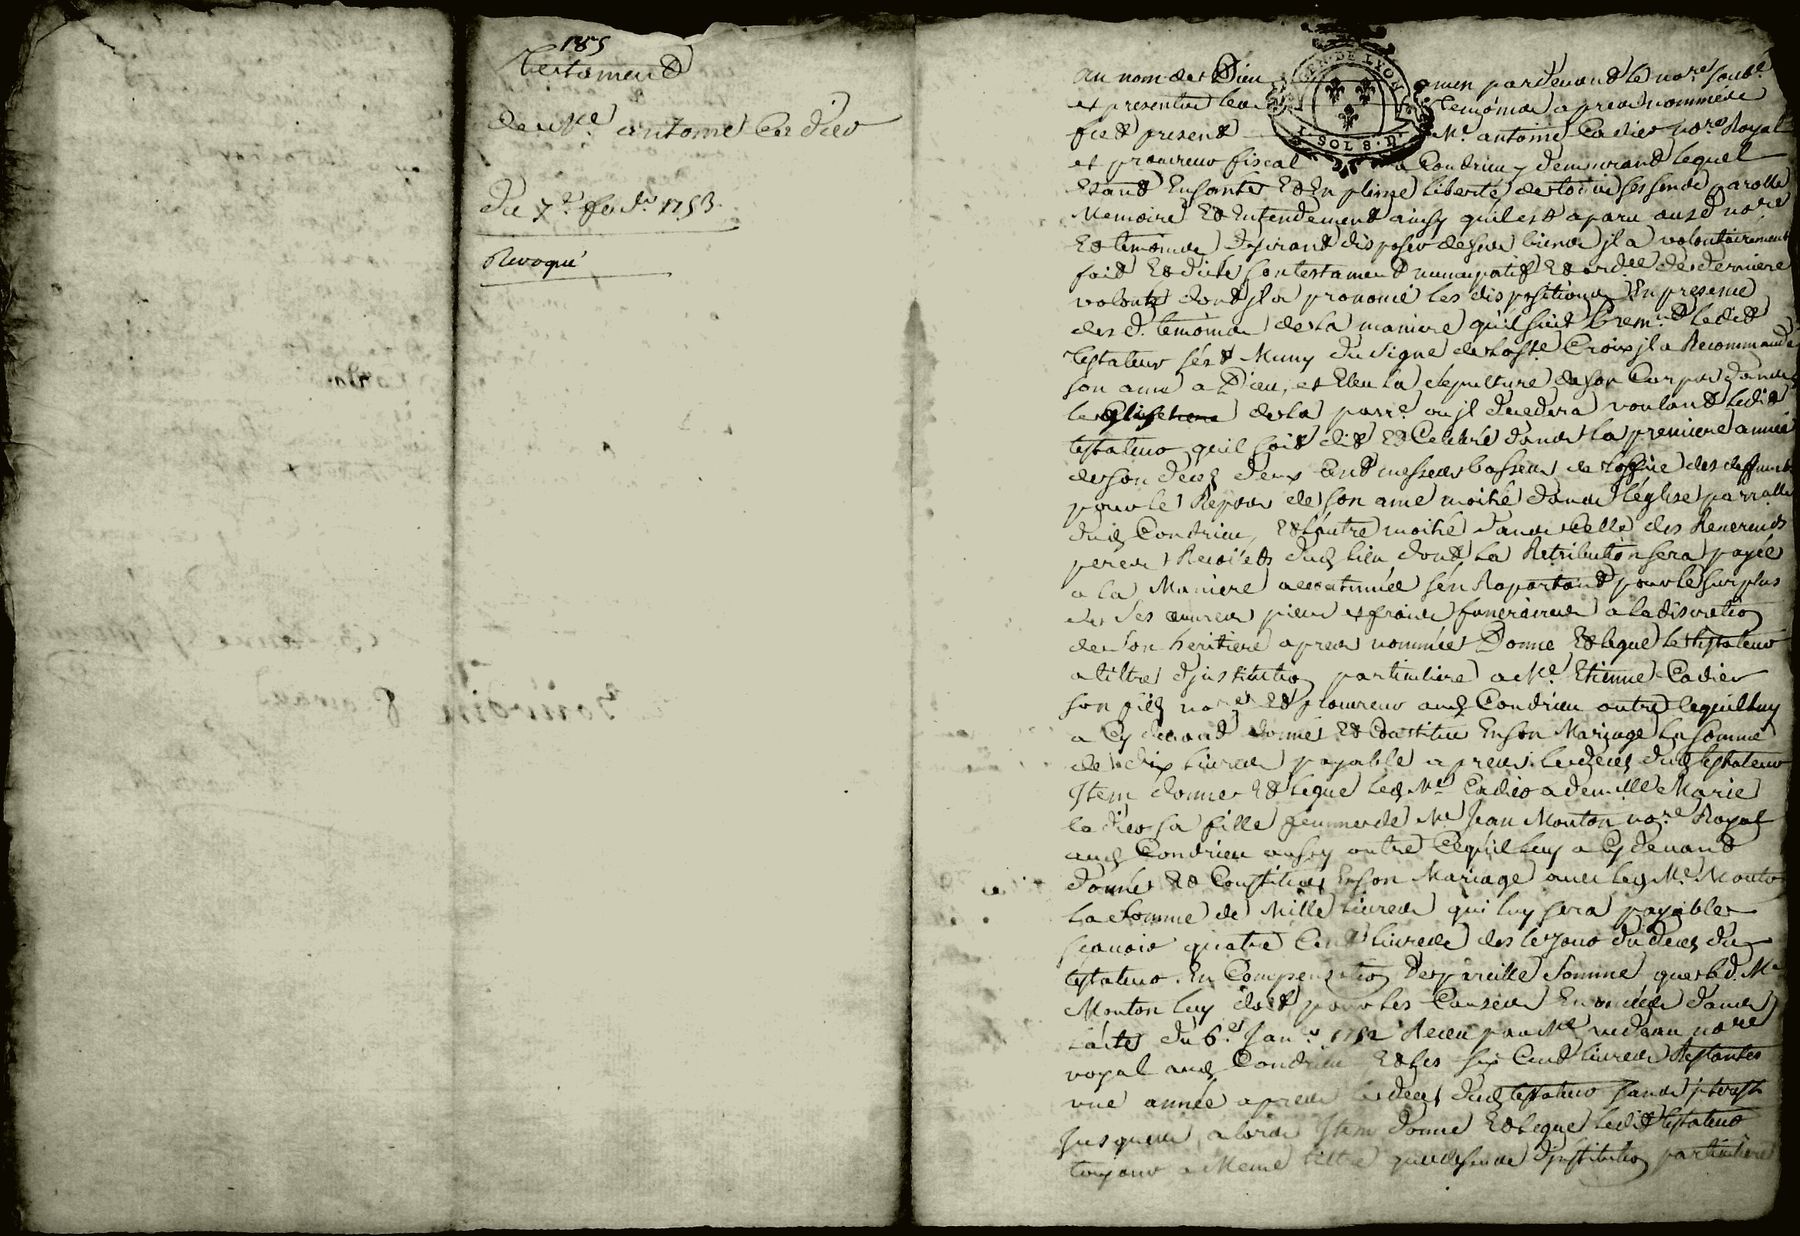 185
Testament
de Me. antoine Cadier
Du 7e. fevr. 1753.
Revoqué
GEN. DE LYON
SOLS. D.
au nom de Dieu amen pardevant le nore. soubs.
et presents les temoins apres nommés
fut present Me. antoine Cadier nore. Royal
et procureur fiscal a Condrieu y demeurant lequel
Etant En santé Et En pleine liberté de tous ses sens parolle
Memoire Et Entendement ainsy quil est aparu aud. nore.
Et temoins desirant disposer de ses biens jl a volontairement
fait Et dicté son testament nuncupatif Et ordce. de derniere
volonté dont jl a prononcé les dispositions En presence
des d. temoins de la maniere qu'il suit Premt. Ledit
testateur s'est Muny du signe de la Ste. Croix jl a Recommandé
son ame a Dieu, et Eleu la sepulture de son Corps dans
de la parre. ou jl decedera voulant ledit
testateur qu'il soit dit Et Celebré dans la premiere année
de son decez deux Cent messes basses de l'office des deffunts
pour le Repos de son ame moitié dans l'église parralle
dud. Condrieu, Et l'autre moitié dans Celle des Reverends
peres Recolets dud. lieu dont la Retribution sera payée
a la Maniere accoutumée s'en Raportant pour le surplus
de ses œuvres pies et frais funeraires a la discretion
de son heritiere apres nommée Donne Et legue le testateur
a tiltre d'institution particuliere a Me. Etienne Cadier
son fils nore. Et procureur aud. Condrieu outre ce quil luy
a Cy devant donné Et Constitué En son Mariage La somme
de dix livres payable apres le decez dud. testateur
Item donne Et legue led. Me. Cadier a demlle. Marie
Cadier sa fille femme de Me. Jean Mouton nore. Royal
aud. Condrieu aussy outre Ce qu'il luy a Cy devant
donné Et Constitué En son Mariage avec led. Me. Mouton
La Somme de Mille Livres qui luy sera payable
sçavoir quatre Cent livres des le jour du decez du
testateur En Compensation de pareille Somme que led. Me.
Mouton luy doit pour les Causes Enoncées dans
l'acte du 6e. Janr. 1752 Receu par Me. nore.
royal aud. Condrieu Et les six Cent livres Restantes
une année apres le decez dud. testateur sans jnterest
jusques a lors Item donne Et legue ledit testateur
toujours a Meme tiltre que dessus d'institution particuliere